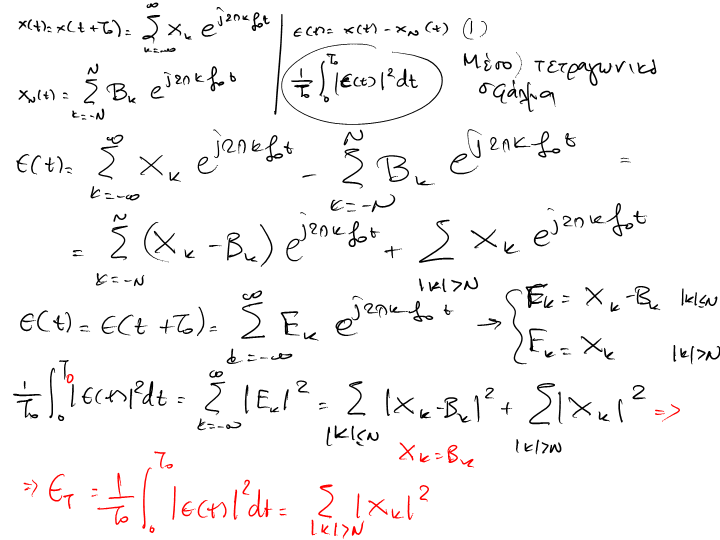 x(t) = x(t + T₀) = ∑_{k=-∞}^{∞} X_k e^{j2πkf₀t} | ε(t) = x(t) - x_N(t) (1)
x_N(t) = ∑_{k=-N}^{N} B_k e^{j2πkf₀t} | 1/T₀ ∫₀^{T₀} |ε(t)|² dt Μέσο τετραγωνικό
σφάλμα
ε(t) = ∑_{k=-∞}^{∞} X_k e^{j2πkf₀t} - ∑_{k=-N}^{N} B_k e^{j2πkf₀t} =
= ∑_{k=-N}^{N} (X_k - B_k) e^{j2πkf₀t} + ∑_{|k|>N} X_k e^{j2πkf₀t}
ε(t) = ε(t + T₀) = ∑_{k=-∞}^{∞} E_k e^{j2πkf₀t} → { E_k = X_k - B_k |k|≤N
E_k = X_k |k|>N
1/T₀ ∫₀^{T₀} |ε(t)|² dt = ∑_{k=-∞}^{∞} |E_k|² = ∑_{|k|≤N} |X_k - B_k|² + ∑_{|k|>N} |X_k|² =>
X_k = B_k
=> ε_T = 1/T₀ ∫₀^{T₀} |ε(t)|² dt = ∑_{|k|>N} |X_k|²